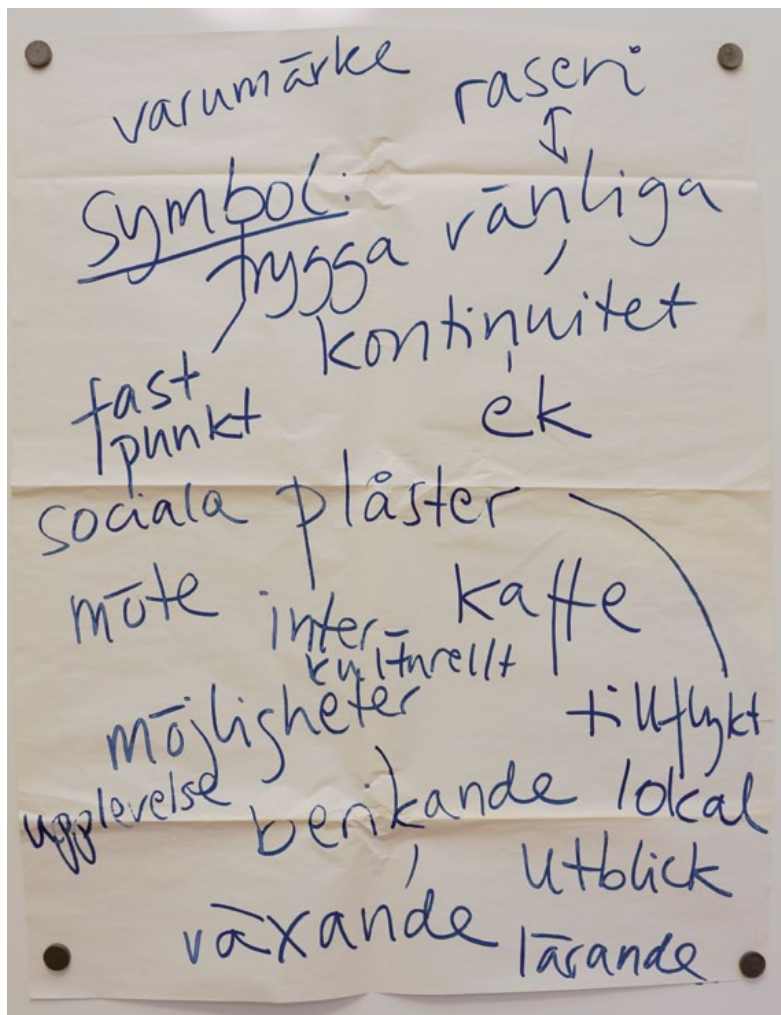 varumärke
raseri
Symbol:
trygga vänliga
kontinuitet
fast
punkt
ek
sociala plåster
möte
inter-
kulturellt
kaffe
möjligheter
tillflykt
upplevelse
berikande
lokal
utblick
växande
lärande